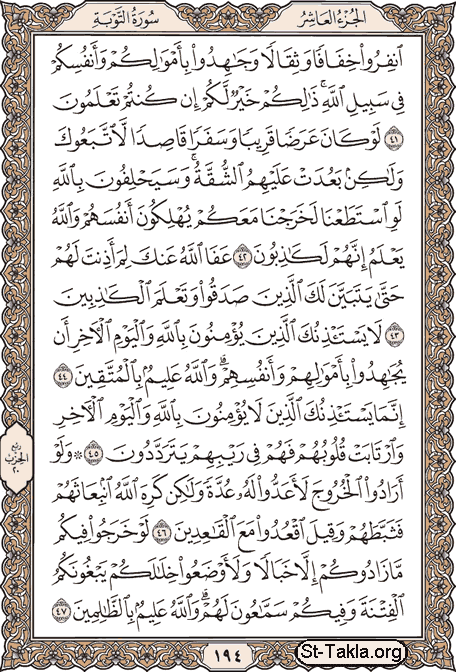 الجزء العاشر
سورة التوبة
ٱنفِرُوا۟ خِفَافًا وَثِقَالًا وَجَٰهِدُوا۟ بِأَمْوَٰلِكُمْ وَأَنفُسِكُمْ
فِى سَبِيلِ ٱللَّهِ ۚ ذَٰلِكُمْ خَيْرٌ لَّكُمْ إِن كُنتُمْ تَعْلَمُونَ
٤١ لَوْ كَانَ عَرَضًا قَرِيبًا وَسَفَرًا قَاصِدًا لَّٱتَّبَعُوكَ
وَلَٰكِنۢ بَعُدَتْ عَلَيْهِمُ ٱلشُّقَّةُ ۚ وَسَيَحْلِفُونَ بِٱللَّهِ
لَوِ ٱسْتَطَعْنَا لَخَرَجْنَا مَعَكُمْ يُهْلِكُونَ أَنفُسَهُمْ وَٱللَّهُ
يَعْلَمُ إِنَّهُمْ لَكَٰذِبُونَ ٤٢ عَفَا ٱللَّهُ عَنكَ لِمَ أَذِنتَ لَهُمْ
حَتَّىٰ يَتَبَيَّنَ لَكَ ٱلَّذِينَ صَدَقُوا۟ وَتَعْلَمَ ٱلْكَٰذِبِينَ
٤٣ لَا يَسْتَـْٔذِنُكَ ٱلَّذِينَ يُؤْمِنُونَ بِٱللَّهِ وَٱلْيَوْمِ ٱلْءَاخِرِ أَن
يُجَٰهِدُوا۟ بِأَمْوَٰلِهِمْ وَأَنفُسِهِمْ ۗ وَٱللَّهُ عَلِيمٌۢ بِٱلْمُتَّقِينَ ٤٤
إِنَّمَا يَسْتَـْٔذِنُكَ ٱلَّذِينَ لَا يُؤْمِنُونَ بِٱللَّهِ وَٱلْيَوْمِ ٱلْءَاخِرِ
وَٱرْتَابَتْ قُلُوبُهُمْ فَهُمْ فِى رَيْبِهِمْ يَتَرَدَّدُونَ ٤٥ ۞ وَلَوْ
أَرَادُوا۟ ٱلْخُرُوجَ لَأَعَدُّوا۟ لَهُۥ عُدَّةً وَلَٰكِن كَرِهَ ٱللَّهُ ٱنۢبِعَاثَهُمْ
فَثَبَّطَهُمْ وَقِيلَ ٱقْعُدُوا۟ مَعَ ٱلْقَٰعِدِينَ ٤٦ لَوْ خَرَجُوا۟ فِيكُم
مَّا زَادُوكُمْ إِلَّا خَبَالًا وَلَأَوْضَعُوا۟ خِلَٰلَكُمْ يَبْغُونَكُمُ
ٱلْفِتْنَةَ وَفِيكُمْ سَمَّٰعُونَ لَهُمْ ۗ وَٱللَّهُ عَلِيمٌۢ بِٱلظَّٰلِمِينَ ٤٧
ربع
الحزب
٢٠
١٩٤
St-Takla.org